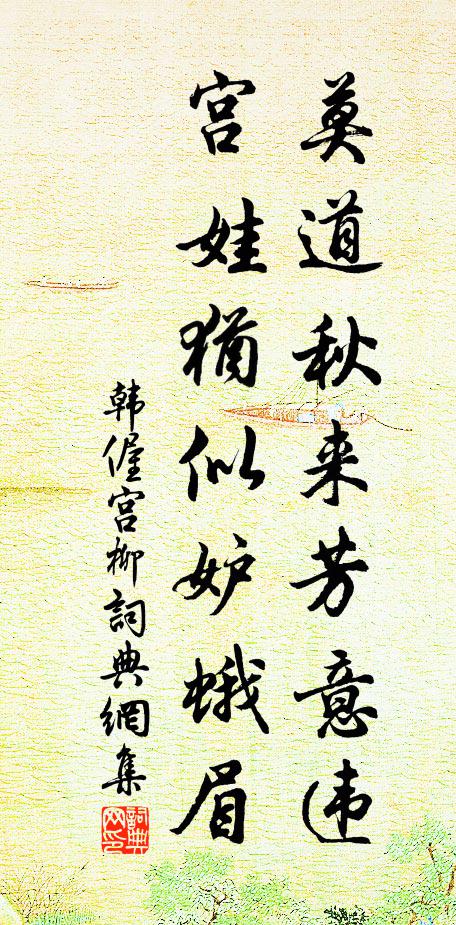 莫道秋来芳意违
宫娃犹似妒蛾眉
韩偓宫柳詞典網集
詞典网印